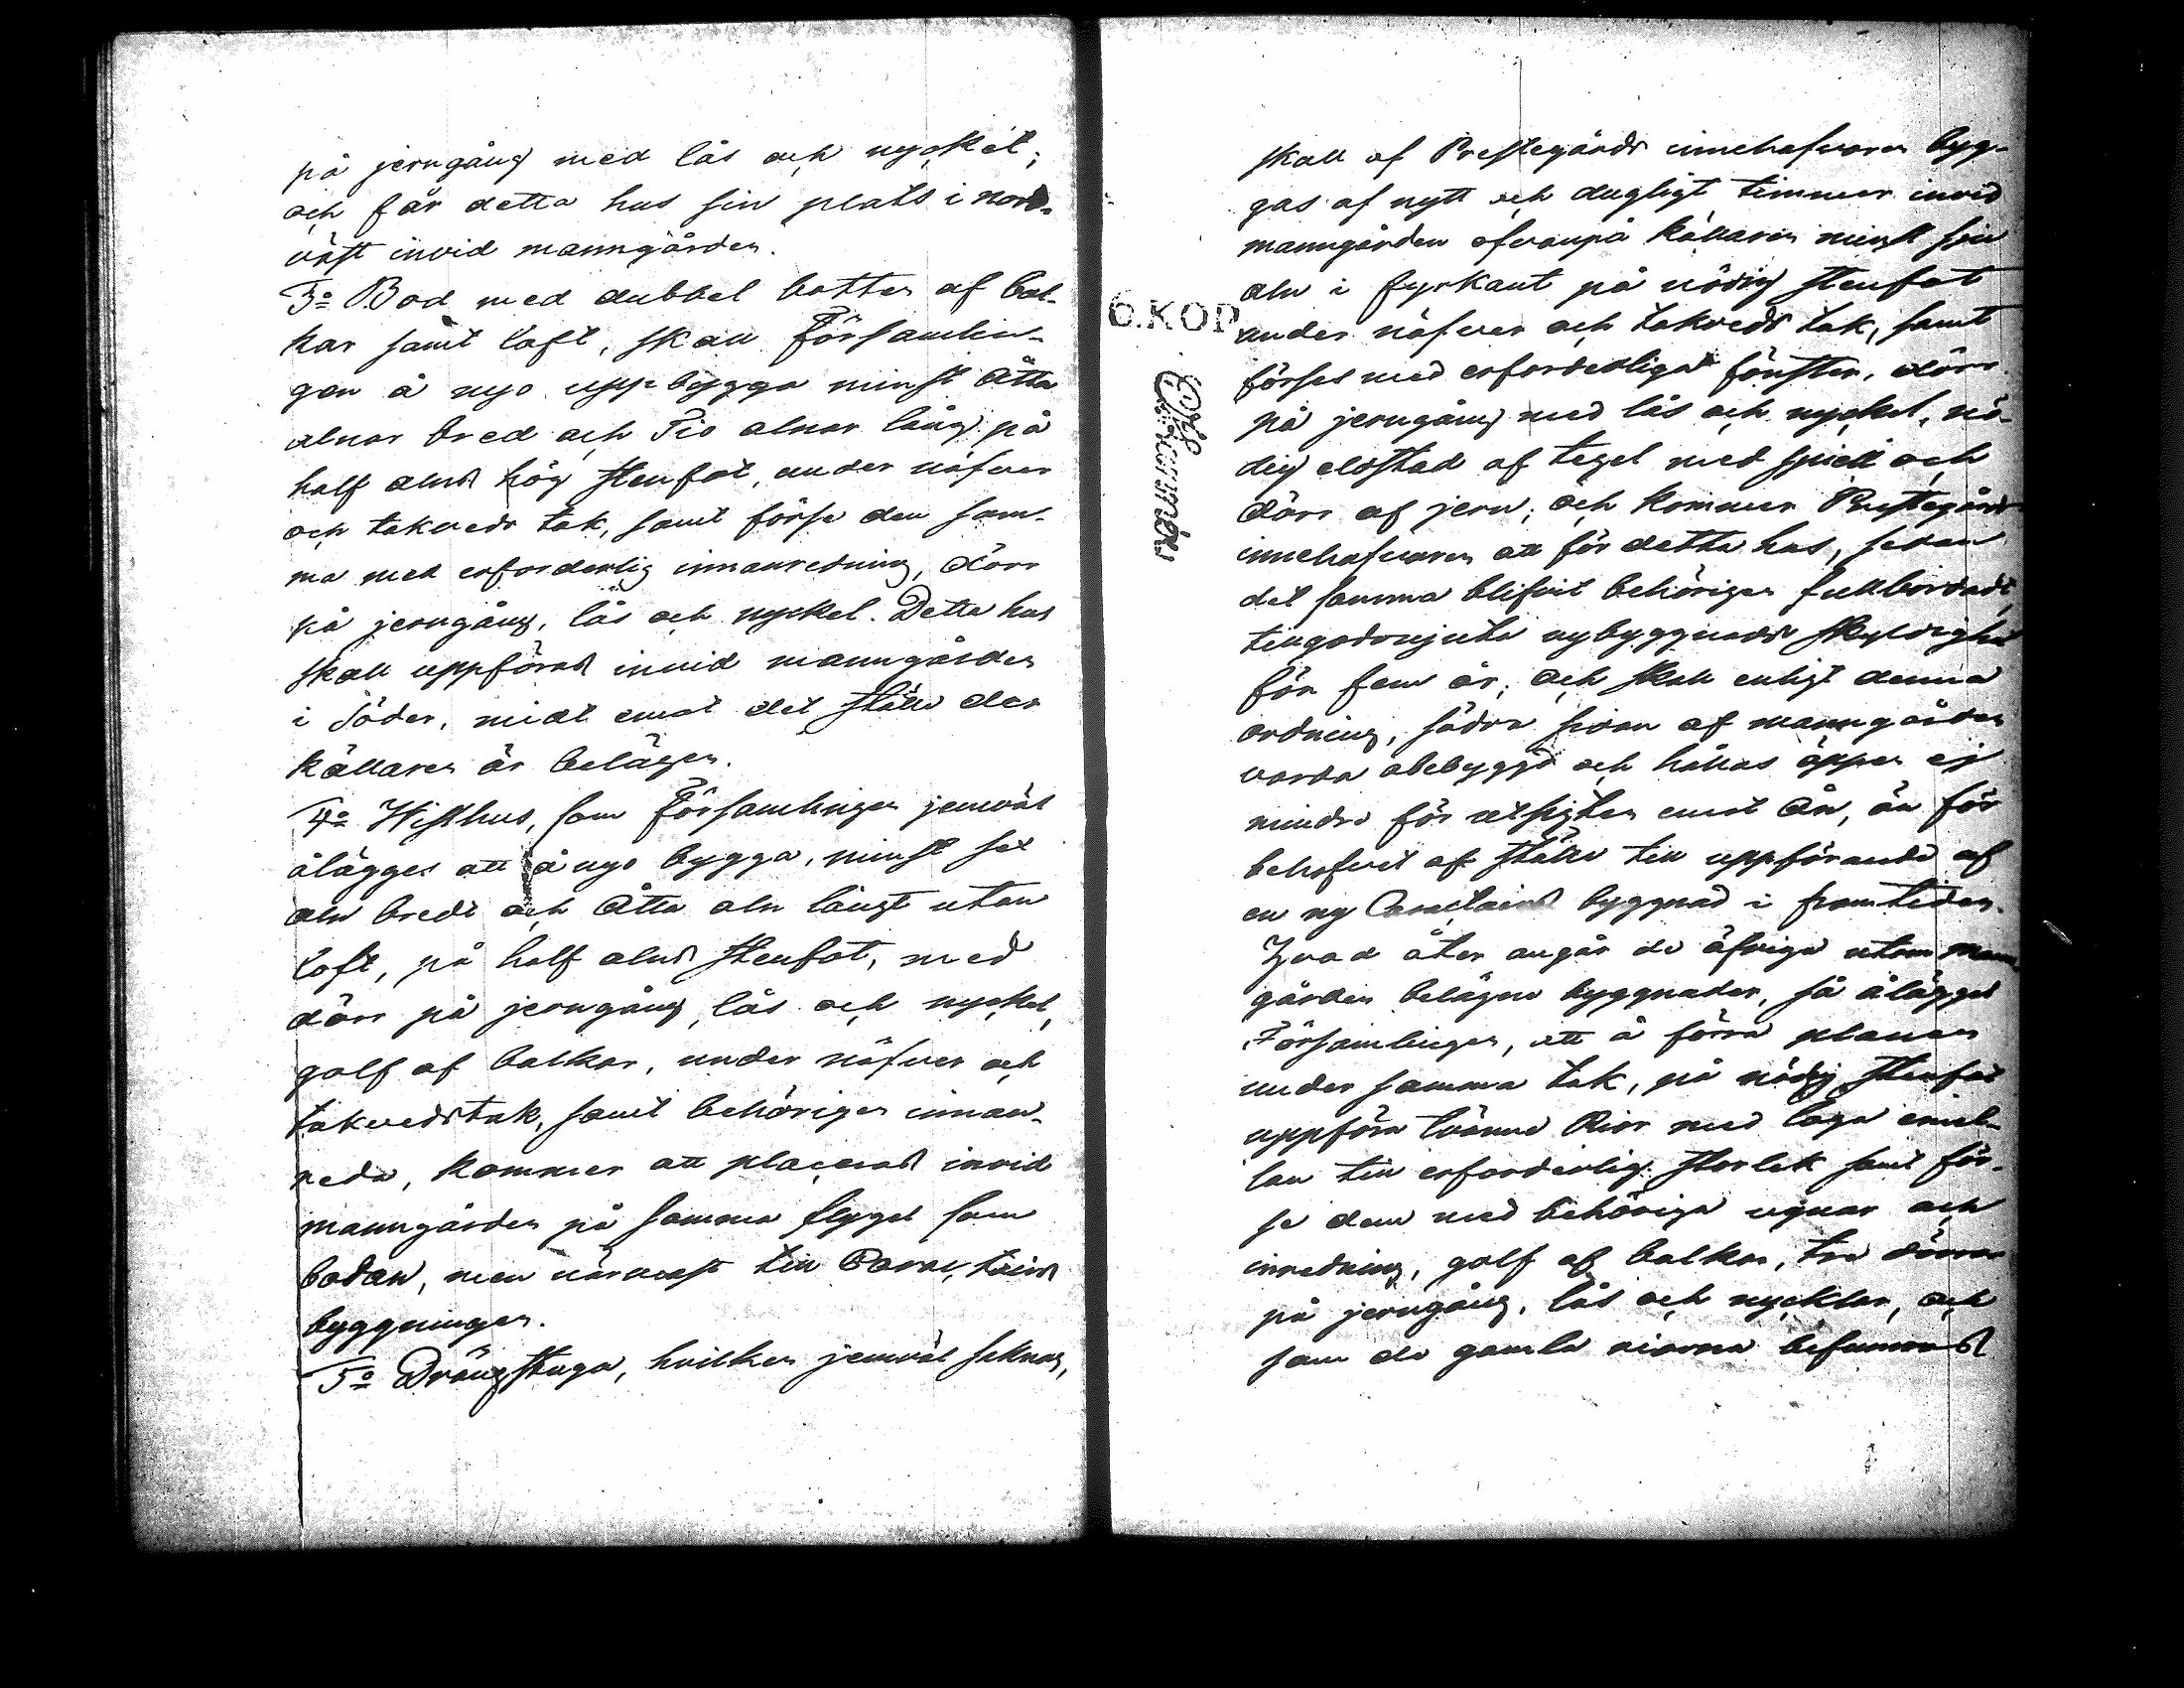 på jerngång med lås och nyckel;
och får detta hus sin plats i nord-
väst invid manngården.
3o Bod med dubbel botten af bal-
kar samt loft, skall Församlin-
gen å nyo uppbygga minst Åtta
alnar bred och Tio alnar lång på
half alns hög stenfot, under näfver
och takveds tak, samt förse den sam-
ma med erforderlig innanredning, dörr
på jerngång, lås och nyckel. Detta hus
skall uppföras invid manngården
i Söder, midt emot det ställe der
källaren är belägen.
4o Visthus, som Församlingen jemväl
ålägges att å nyo bygga, minst sex
aln bredt och Åtta aln långt utan
loft, på half alns stenfot, med
dörr på jerngång, lås och nyckel,
golf af balkar, under näfver och
takvedstak, samt behörigen innan-
reda, kommer att placeras invid
manngården på samma flygel som
bodan, men närmast till
byggningen.
5o Drängstuga, hvilken jemväl saknas,
skall af Prestegårds innehafvaren byg-
gas af nytt och dugligt timmer invid
manngården ofvanpå källaren minst sju
aln i fyrkant på nödig stenfot
under näfver och takveds tak, samt
förses med erforderliga fönster, dörr
på jerngång med lås och nyckel, nö-
dig eldstad af tegel med spiell och
dörr af jern; och kommer Prestegårds
innehafvaren att för detta hus, sedan
det samma blifvit behörigen fullbordadt,
tillgodonjuta nybyggnads skyldighet
för fem år; och skall enligt denna
ordning, södra sidan af manngården
varda obebyggd och hållas öppen ej
mindre för utsigten emot ån, än för
behofvet af ställe till uppförande af
en ny byggnad i framtiden.
Hvad åter angår de öfriga utom mann-
gården belägne byggnader, så ålägges
Församlingen, att å förra planen
under samma tak, på nödig stenfot
uppföra tvänne Rior med loga emel-
lan till erforderlig storlek samt för-
se dem med behöriga ugnar och
inredning, golf af balkar, tre dörrar
på jerngång, lås och nycklar, och
som de gamla riorna befunnos
6.KOP